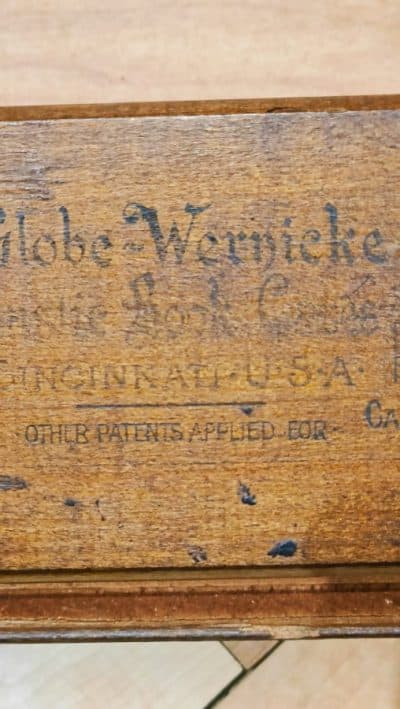 Globe-Wernicke
Book
CINCINNATI·U·S·A·
OTHER PATENTS APPLIED FOR
CA